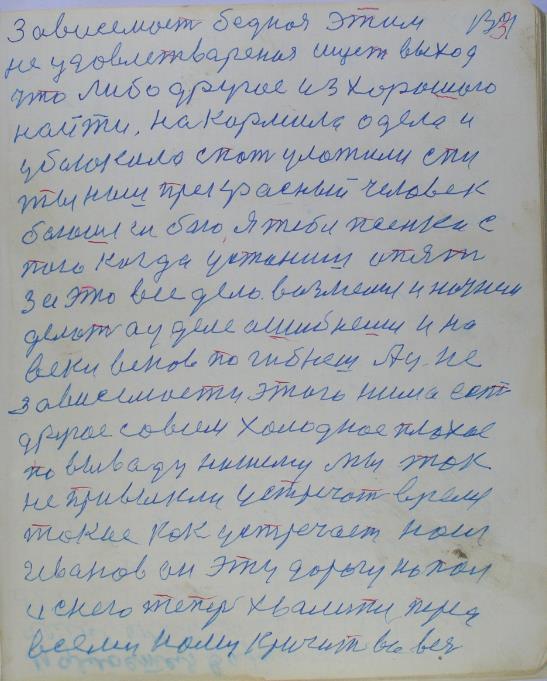 Зависимост бедная этим 1321
не удовлетварения ищет выход
что либо другое из хорошого
найти, накормила одела и
убаюкала спат уложили спи
ты ныш прекрасный человек
богоши
того когда устаниш опят
за это все дело. возмеш и начнеш
делат а у деле ашибнеш и на
веки веков погибнеш А у не
зависемости этого нима ест
другое совсем холодное плохое
по вываду нишему мы так
не привыкли устречат время
такие как устречает наш
Иванов он эту дорогу напал
и снего тепер хвалити перед
всеми наму кричит во вег